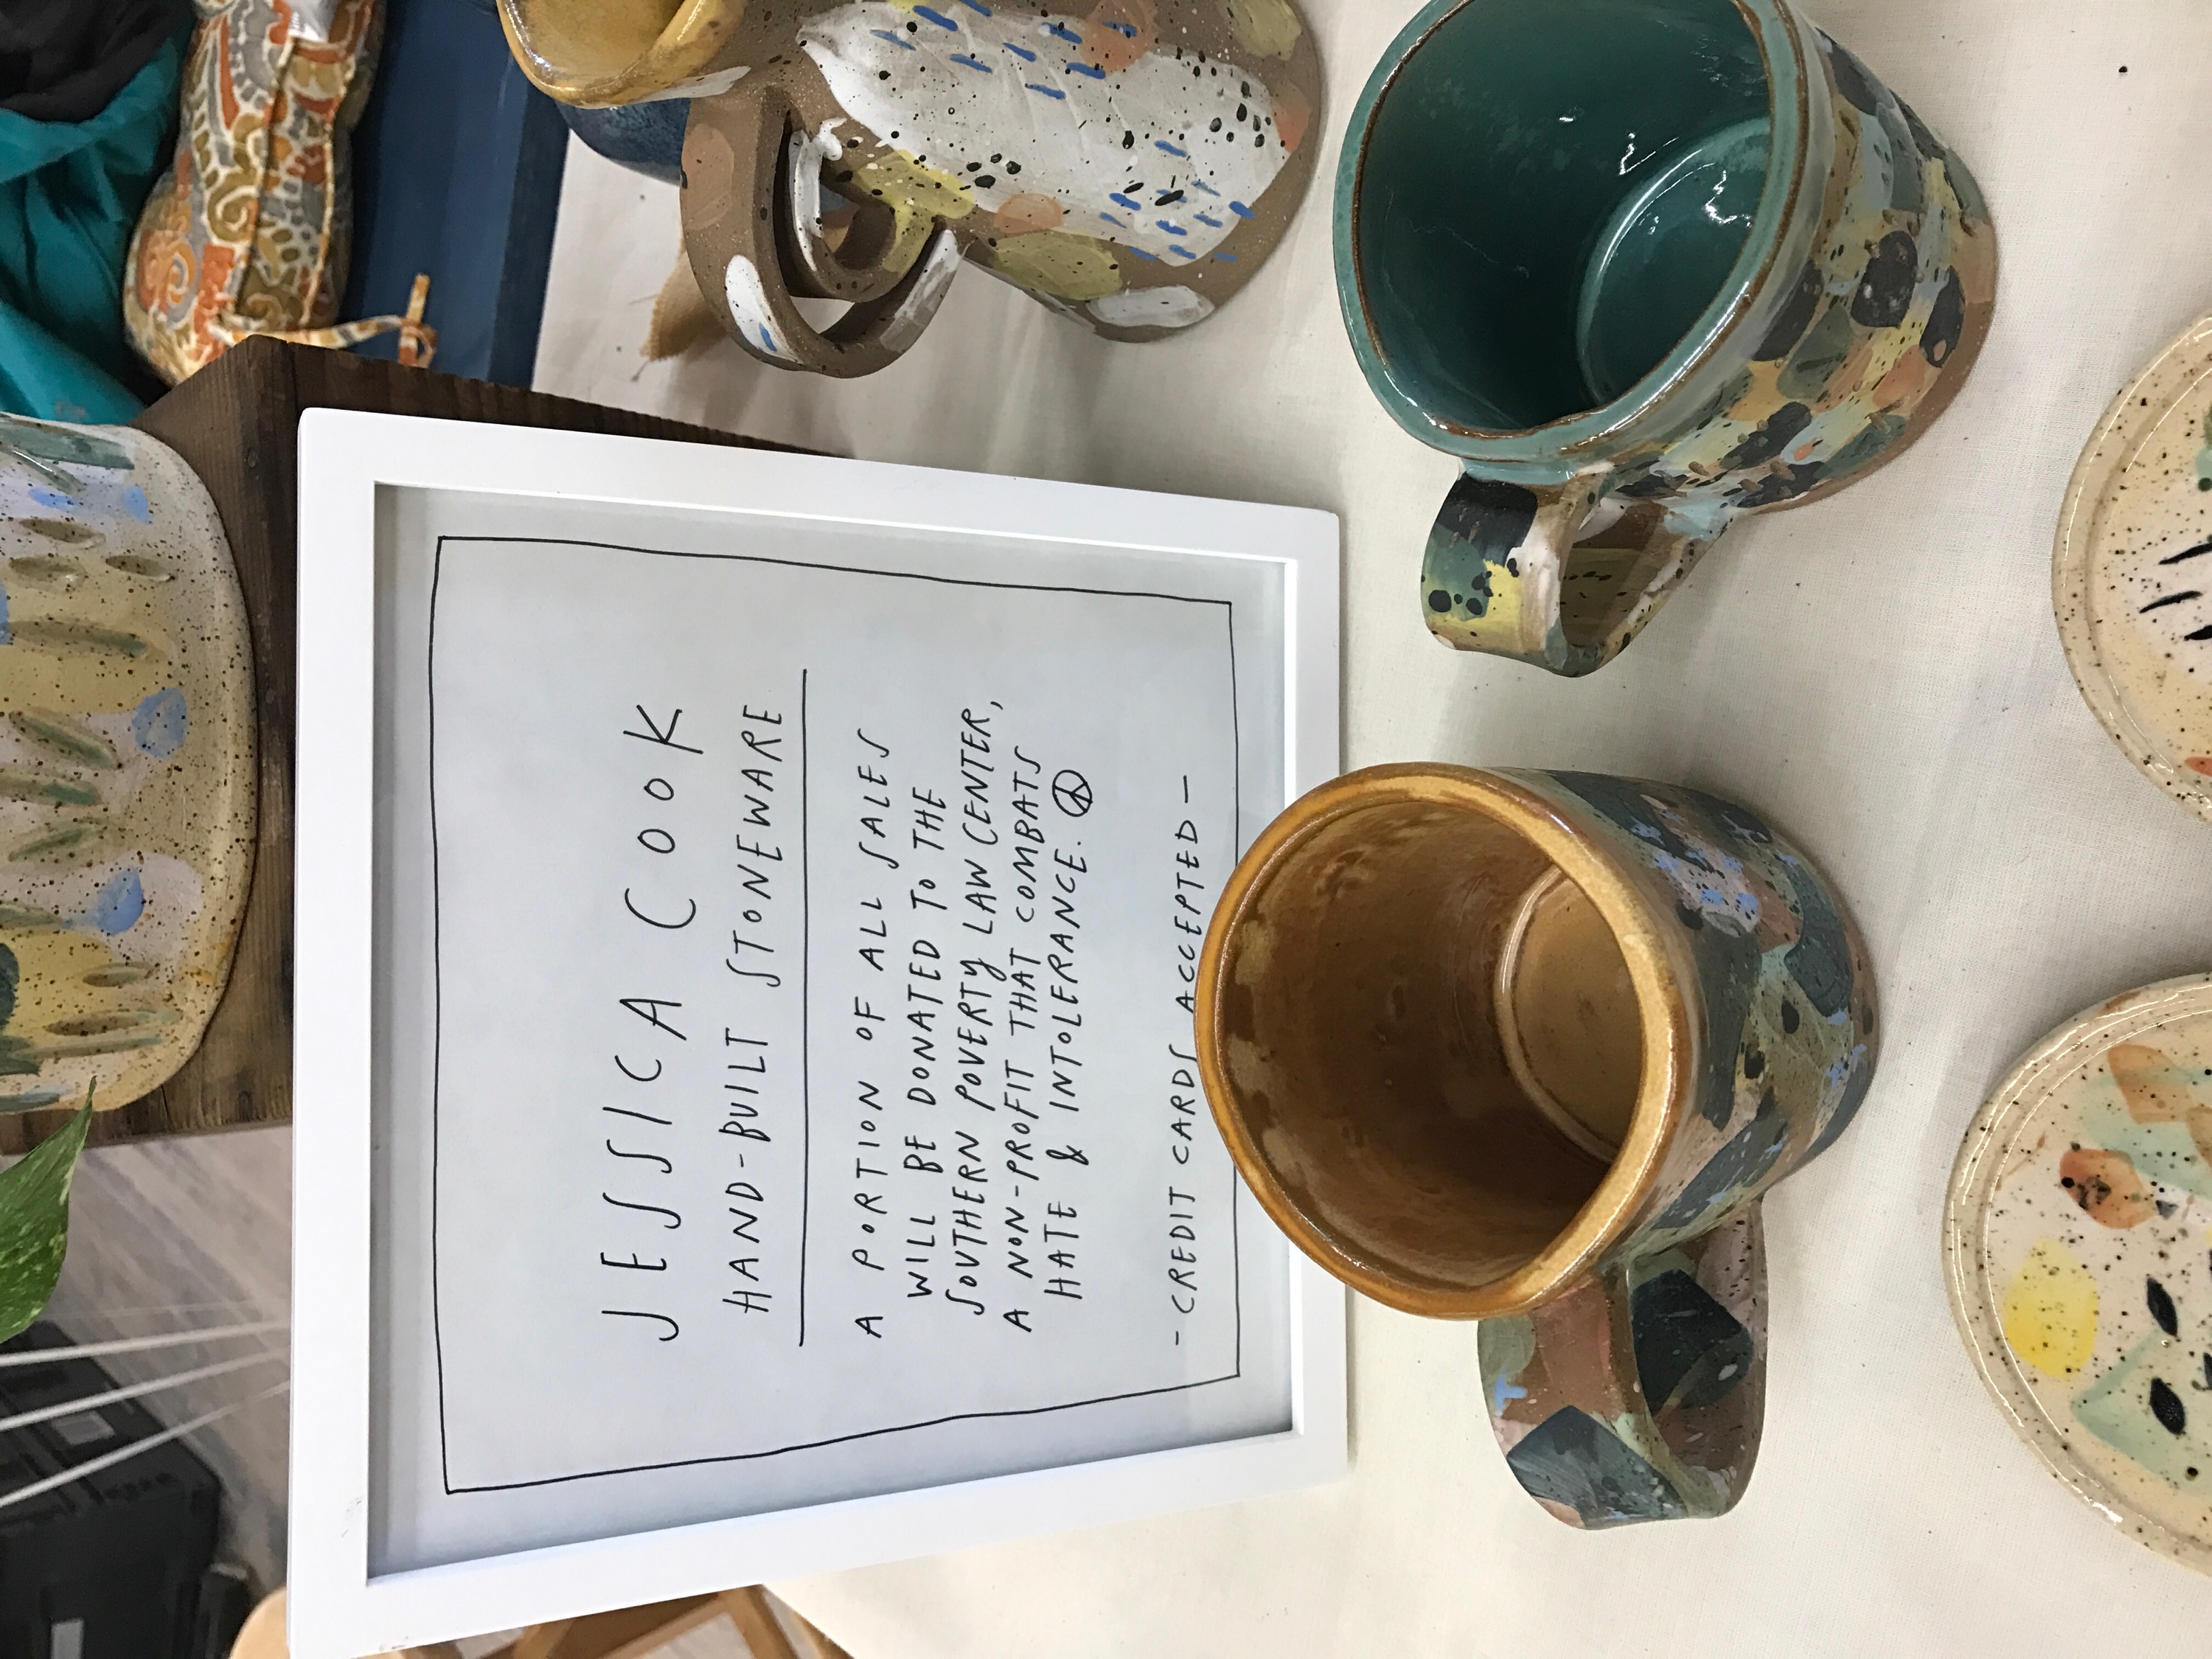 JESSICA COOK
HAND-BUILT STONEWARE
A PORTION OF ALL SALES
WILL BE DONATED TO THE
SOUTHERN POVERTY LAW CENTER,
A NON-PROFIT THAT COMBATS
HATE & INTOLERANCE. ☮
- CREDIT CARDS ACCEPTED -